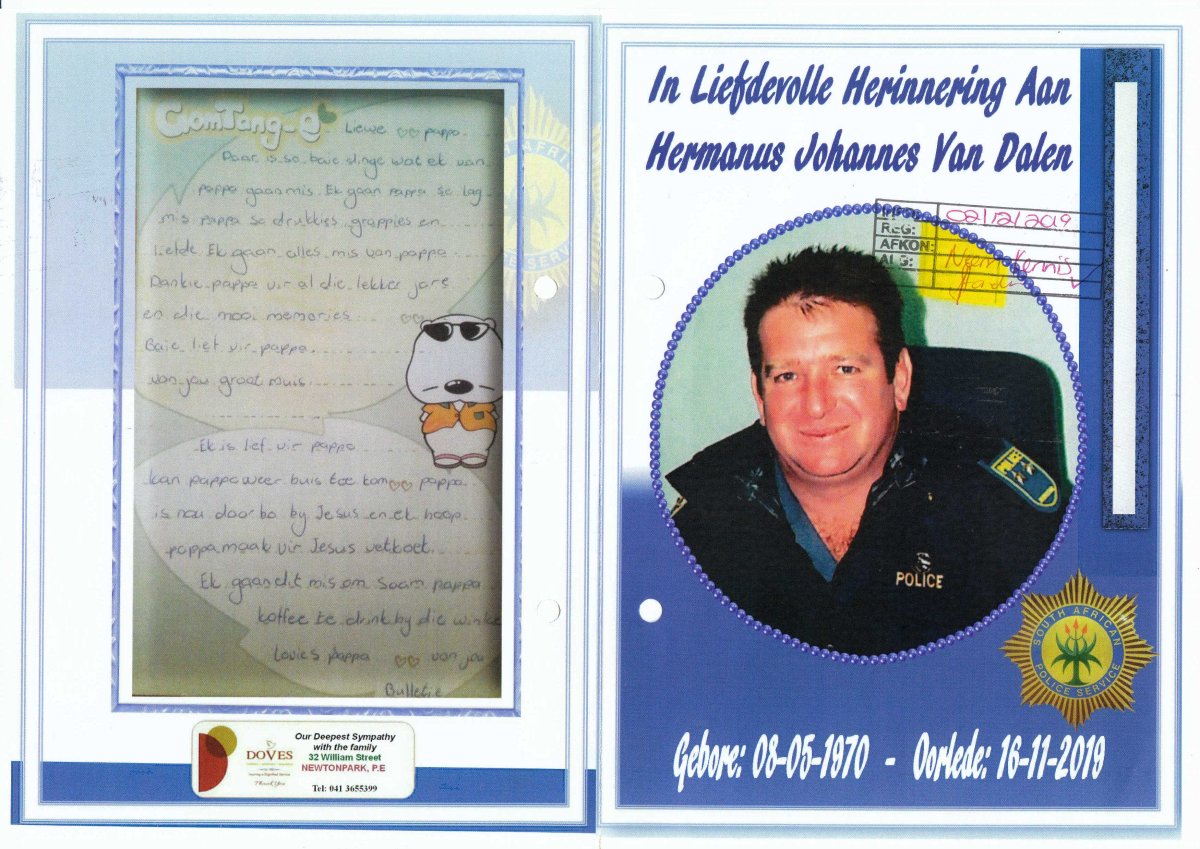 GomTang-e
Liewe pappa
Daar is so baie dinge wat ek van
pappa gaan mis. Ek gaan pappa se lag
mis pappa se drukkies, grappies en
liefde. Ek gaan alles mis van pappa
Dankie pappa vir al die lekker jare
en die mooi memories
Baie lief vir pappa
van jou groot muis
Ek is lief vir pappa
kan pappa weer huis toe kom pappa
is nou daar bo by Jesus en ek hoop
pappa maak vir Jesus vetkoek
Ek gaan dit mis om saam pappa
koffee te drink by die winke
Lovies pappa van jou
Bulletie
DOVES
Thank You
Our Deepest Sympathy
with the family
32 William Street
NEWTONPARK, P.E
Tel: 041 3655399
In Liefdevolle Herinnering Aan
Hermanus Johannes Van Dalen
02/12/2019
REG:
AFKON:
ALG:
Neem Kennis
POLICE
SOUTH AFRICAN
POLICE SERVICE
Gebore: 08-05-1970 - Oorlede: 16-11-2019